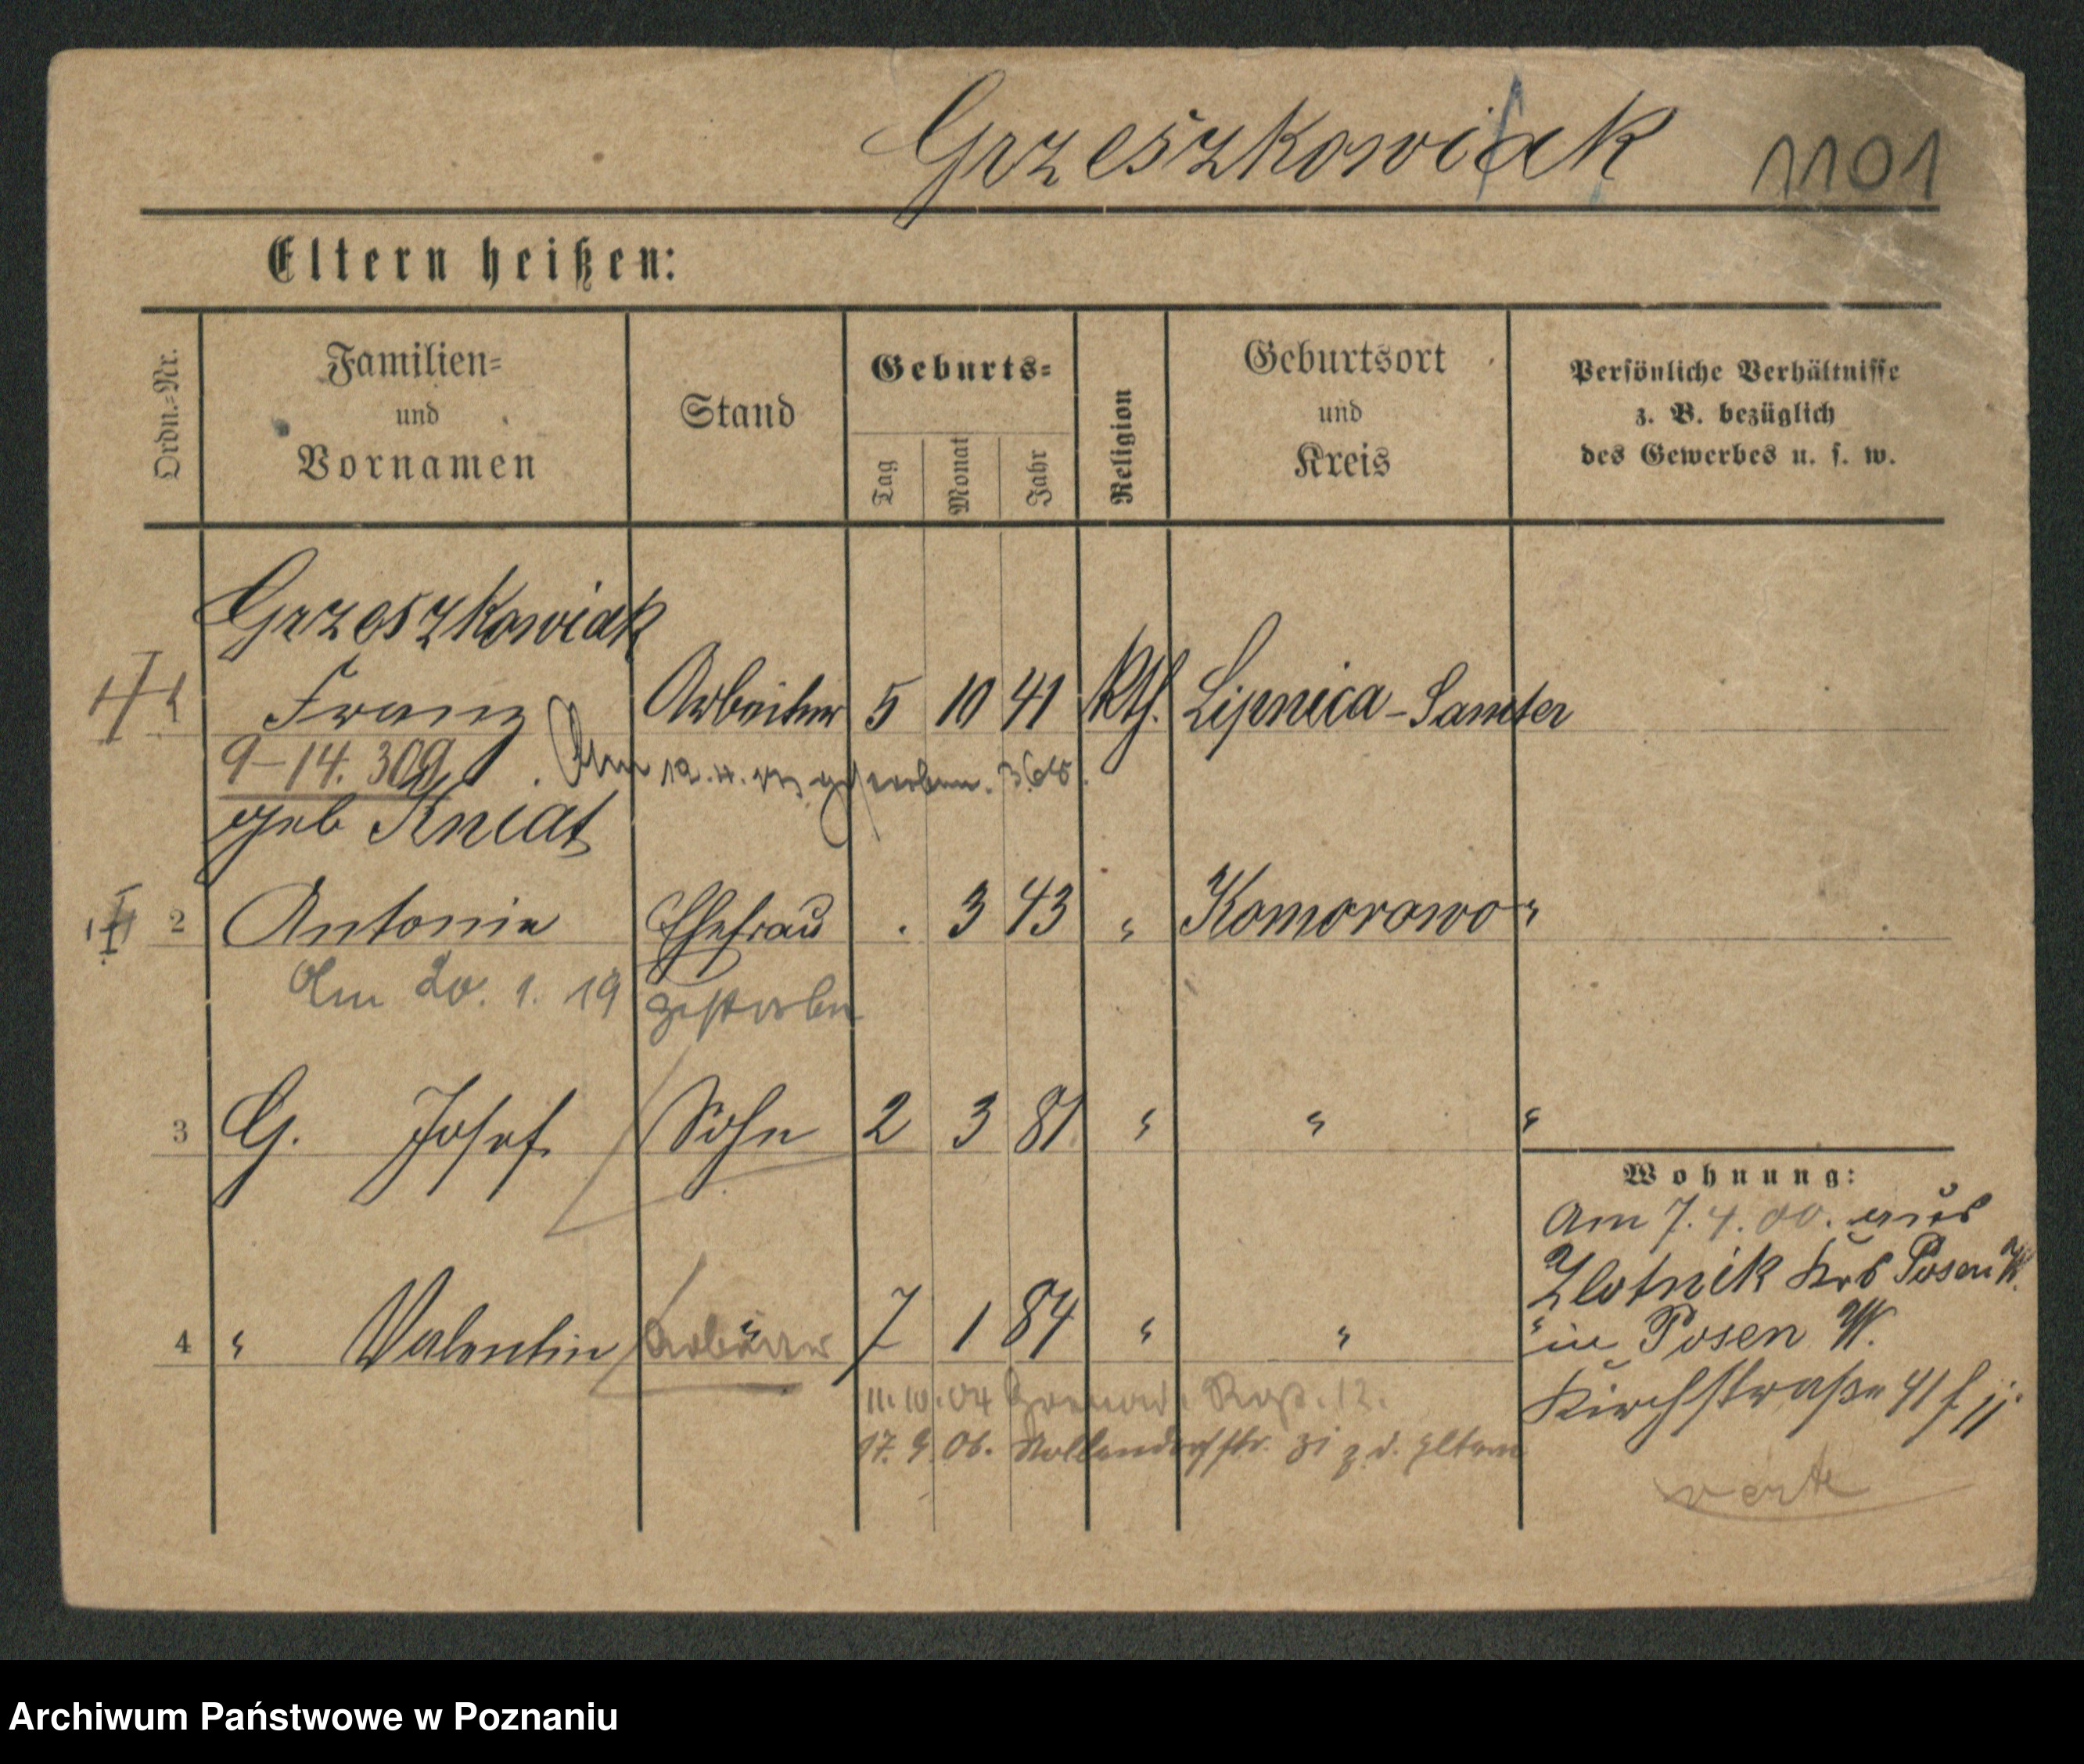 Grzeszkowiak 1101
Eltern heißen:
Ordn.=Nr.
Familien=
und
Vornamen
Stand
Geburts=
Tag
Monat
Jahr
Religion
Geburtsort
und
Kreis
Persönliche Verhältnisse
z. B. bezüglich
des Gewerbes u. s. w.
Grzeszkowiak
1 Franz Arbeiter 5 10 41 Kth. Lipnica - Samter
9-14.309 Am gestorben.
geb Kniat
2 Antonie Ehefrau . 3 43 " Komorowo "
Am 20. 1. 19 gestorben
3 G. Josef Sohn 2 3 81 " " "
4 " Valentin " 7 1 84 " "
11.10.04
17. 9. 06. Nollendorfstr. 31 z. d. Eltern
Wohnung:
Am 7. 4. 00. aus
Zlotnik Krs Posen W.
in Posen W.
Kirchstraße 41
verte
Archiwum Państwowe w Poznaniu